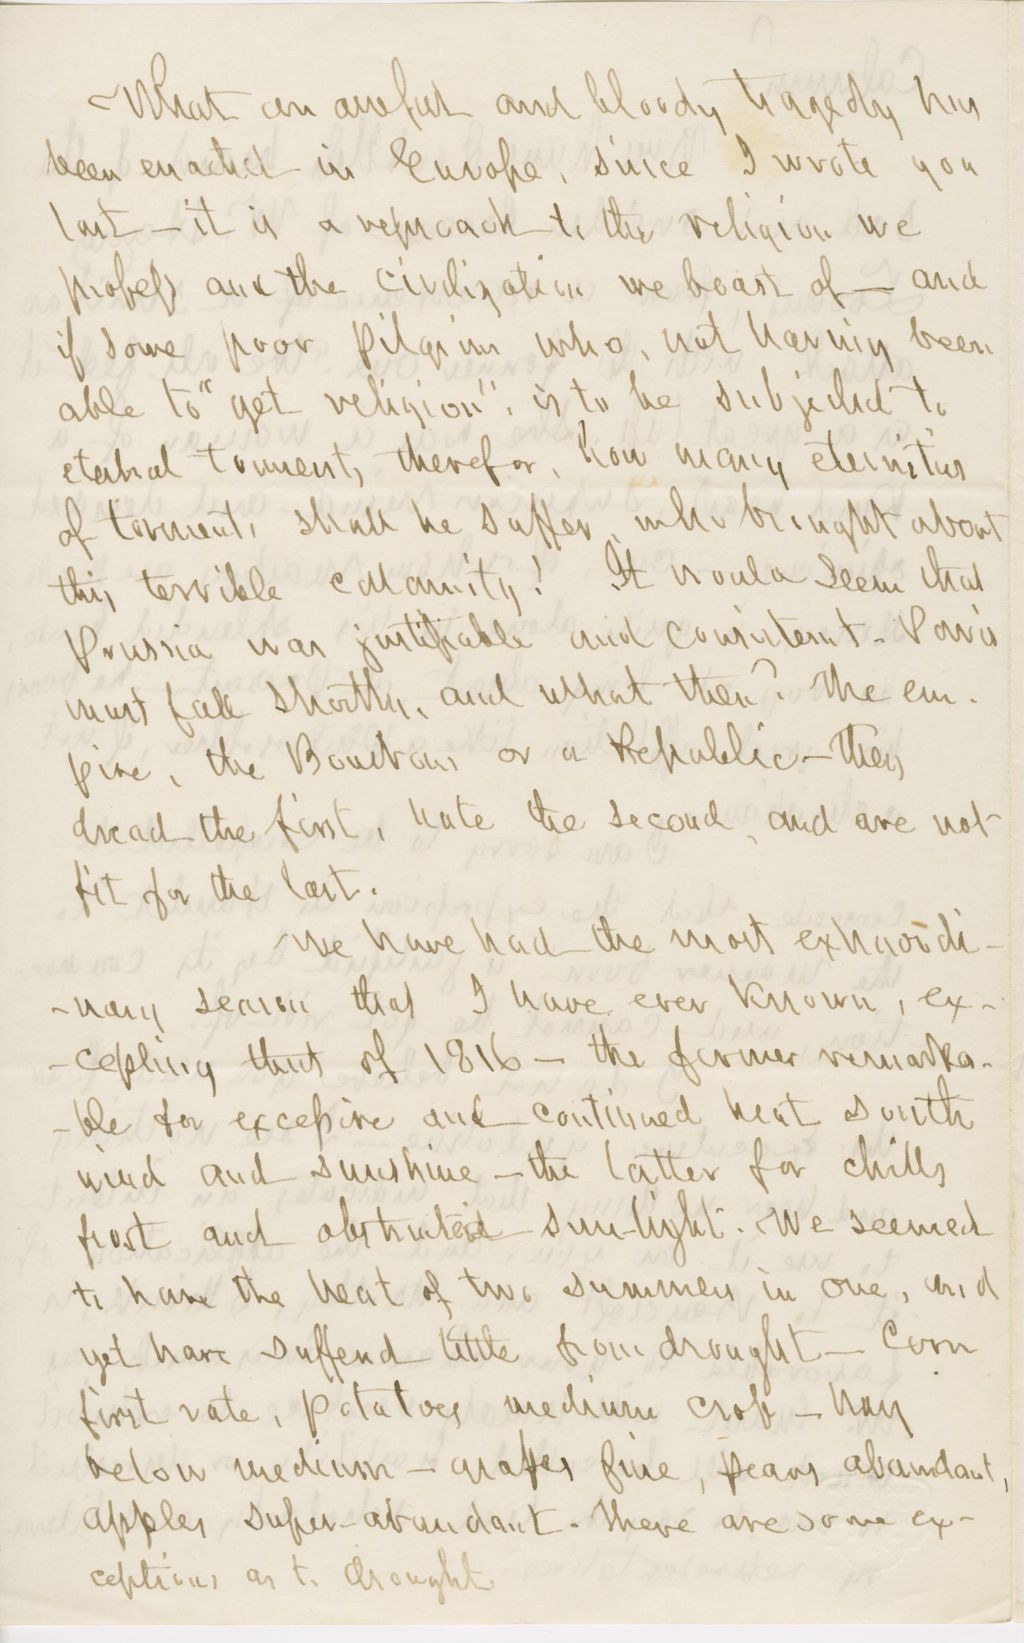 ~What an awful and bloody tragedy has
been enacted in Europe, since I wrote you
last – it is a reproach to the religion we
profess and the civilization we boast of – and
if some poor pilgrim who, not having been
able to "get religion", is to be subjected to
eternal torments, therefor, how many eternities
of torments shall he suffer, who brought about
this terrible calamity! It would seem that
Prussia was justifiable and consistent. Paris
must fall shortly, and what then? The em-
pire, the Bourbons or a Republic – they
dread the first, hate the second, and are not
fit for the last.
~We have had the most extraordi-
-nary season that I have ever known, ex-
-cepting that of 1816 – the former remarka-
-ble for excessive and continued heat south
wind and sunshine – the latter for chills
frost and obstructed sun-light. We seemed
to have the heat of two summers in one, and
yet have suffered little from drought – Corn
first rate, potatoes medium crop – hay
below medium – grapes fine, pears abundant,
apples super-abundant. There are some ex-
ceptions as to drought